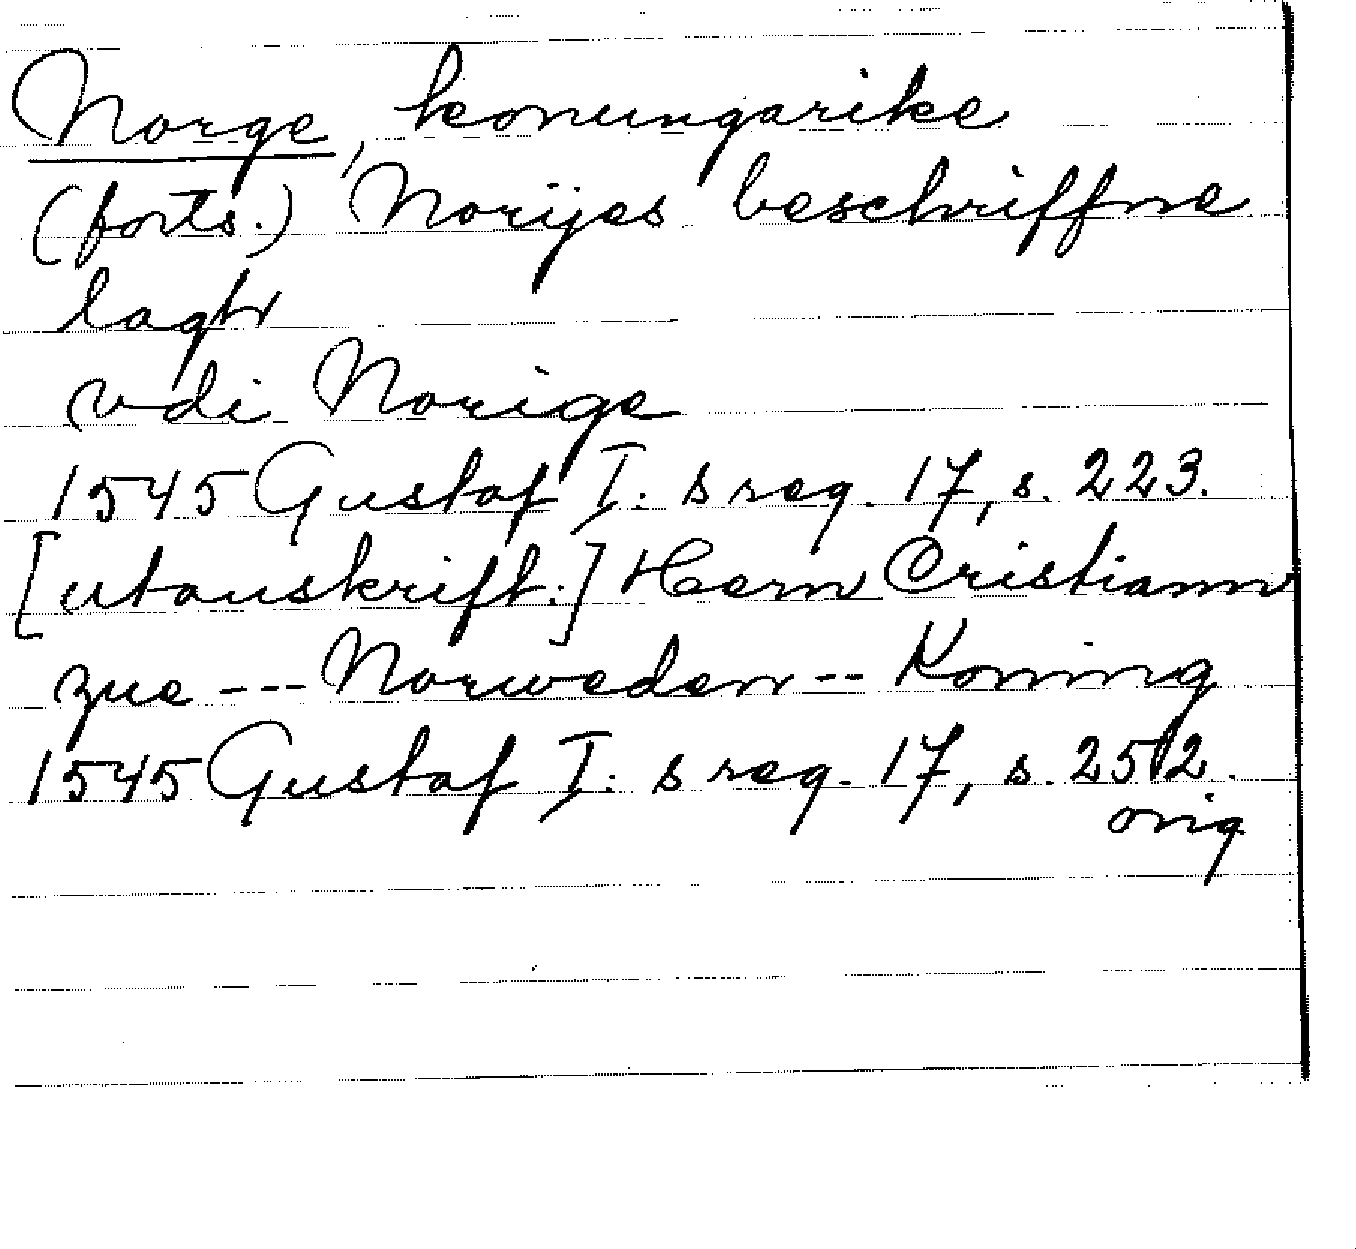 Norge, konungarike
(forts.) Norijes beschriffne
lagh
vdi Norige
1545 Gustaf I:s reg. 17, s. 223.
[utanskrift:] Hern Cristiann
zue --- Norweden -- Koning
1545 Gustaf I:s reg. 17, s. 252.
orig